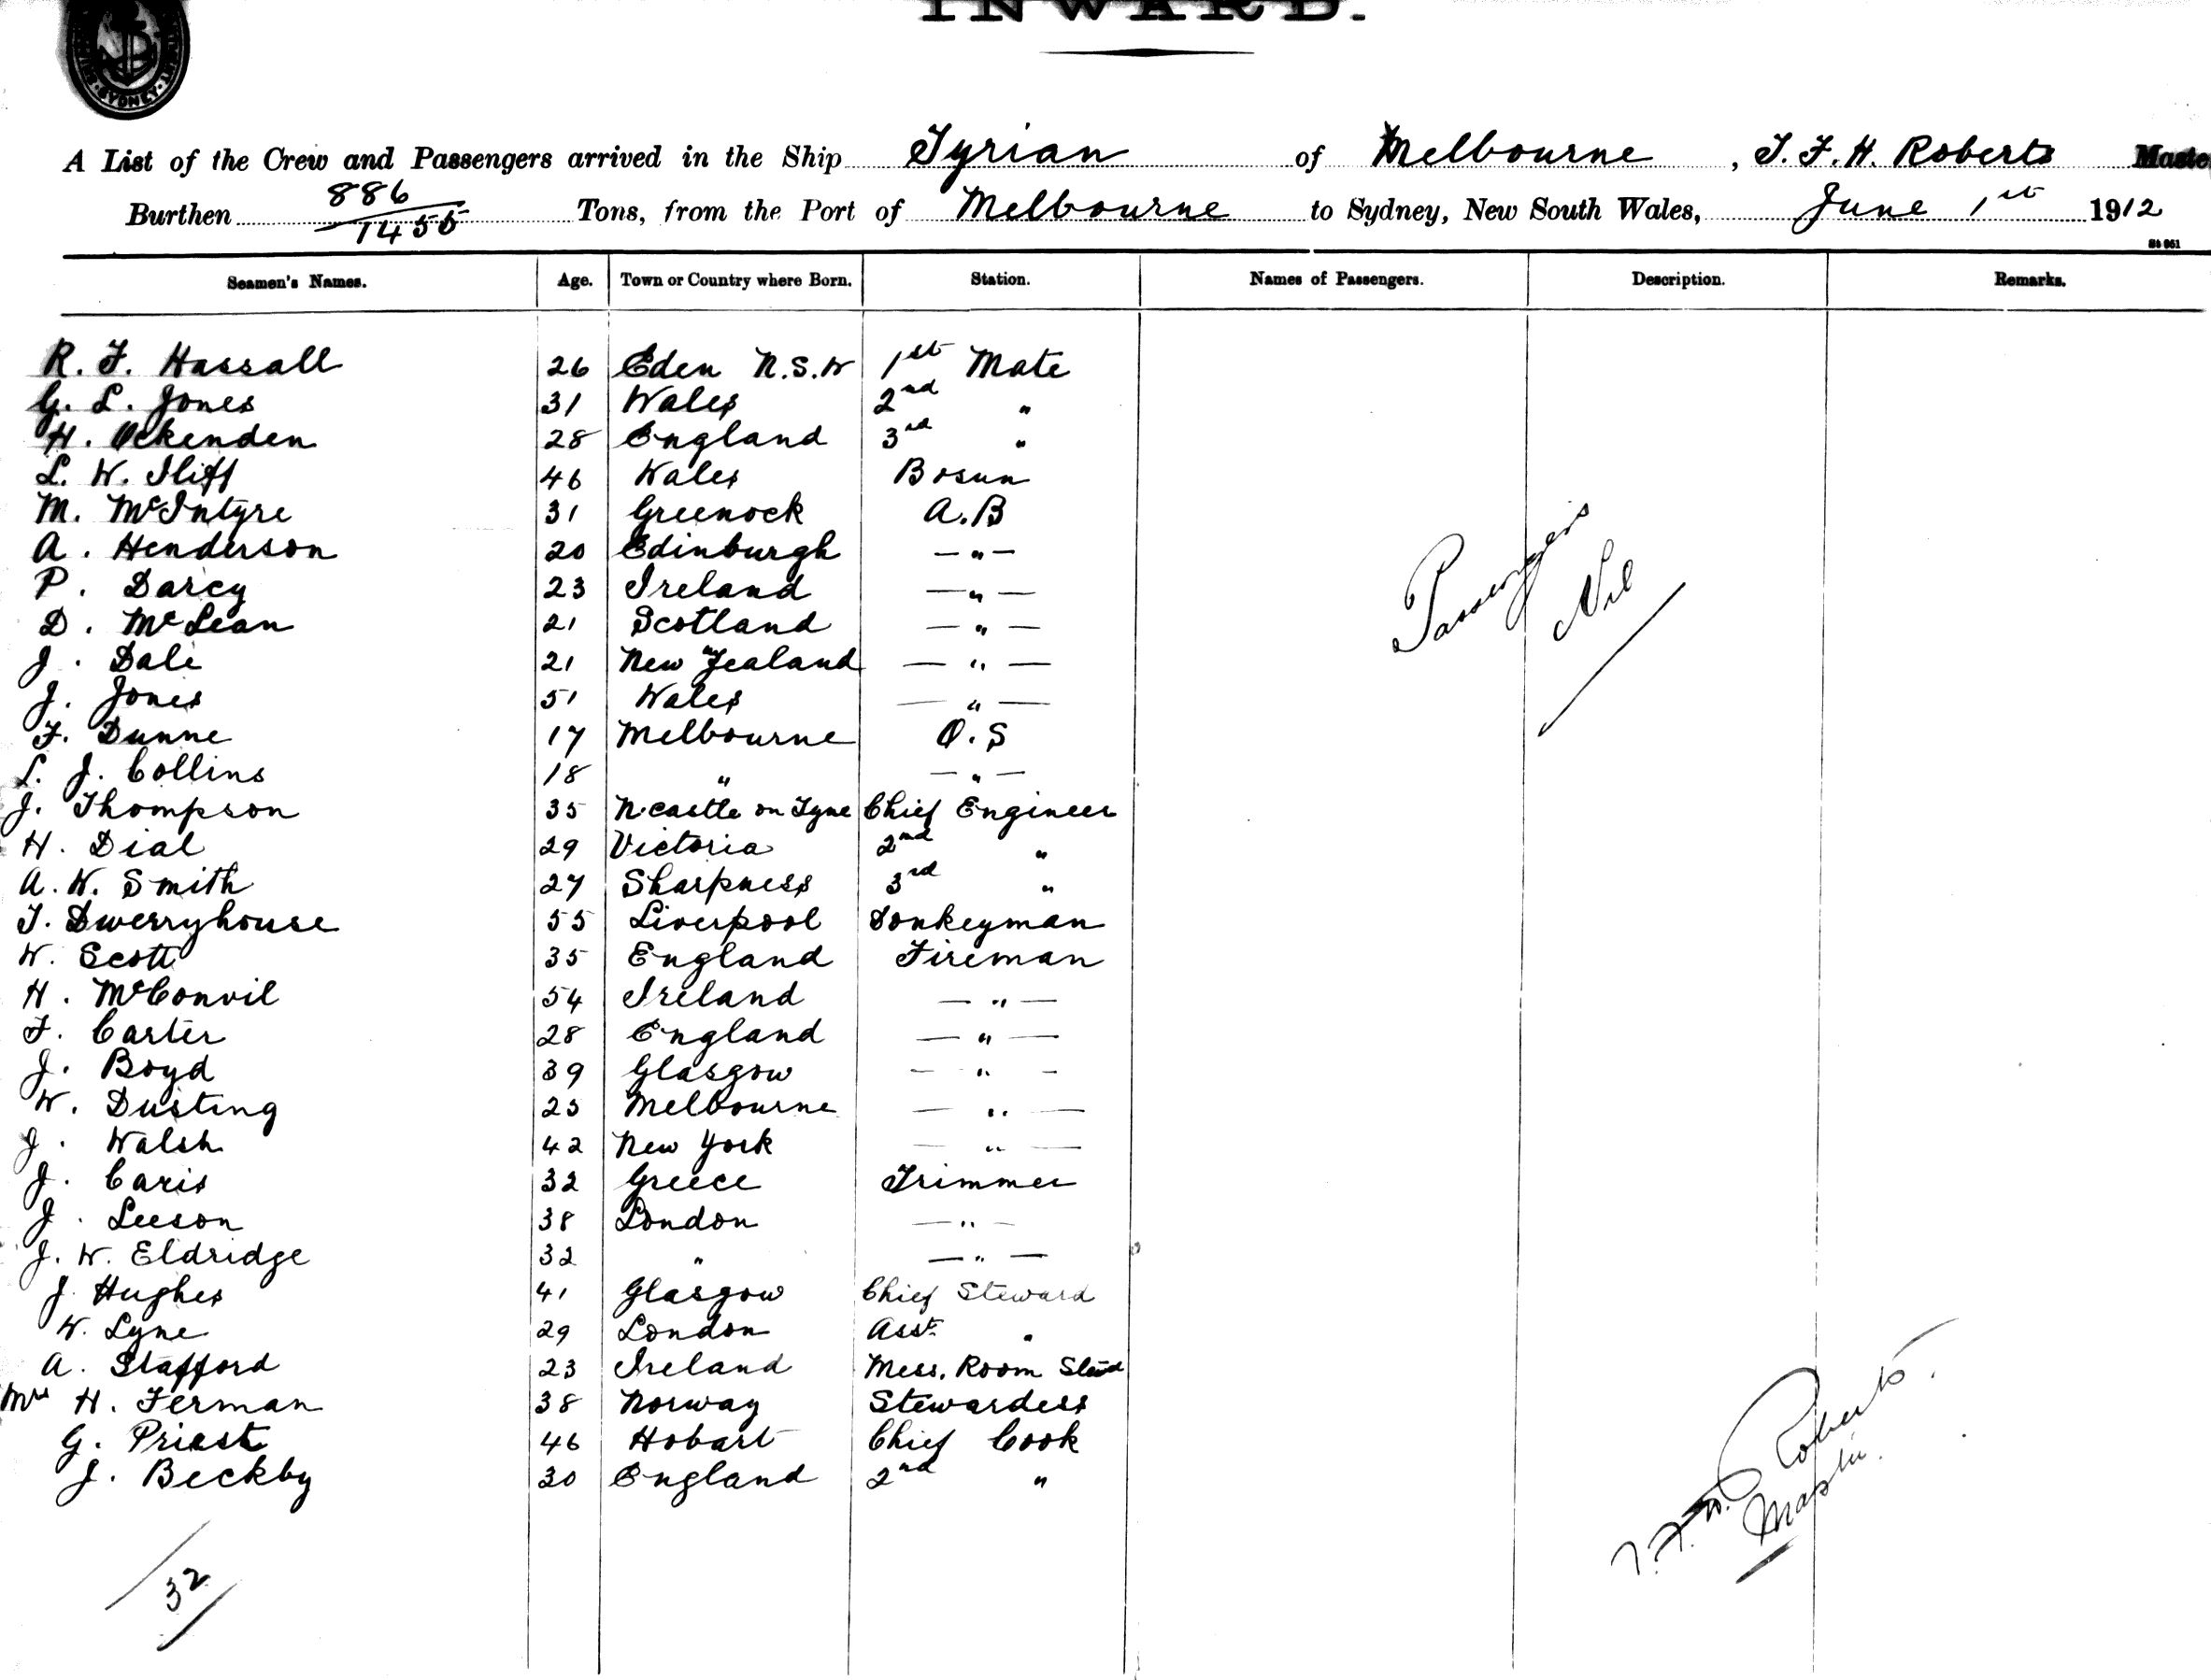 INWARD.
SYDNEY
A List of the Crew and Passengers arrived in the Ship Tyrian of Melbourne, T. F. H. Roberts Master
Burthen 886/1455 Tons, from the Port of Melbourne to Sydney, New South Wales, June 1st 1912
Seamen's Names. Age. Town or Country where Born. Station. Names of Passengers. Description. Remarks.
R. F. Hassall 26 Eden N.S.W 1st Mate
G. L. Jones 31 Wales 2nd "
H. Ockenden 28 England 3rd "
L. W. Iliff 46 Wales Bosun
M. McIntyre 31 Greenock A.B
A. Henderson 20 Edinburgh — " —
P. Darcy 23 Ireland — " —
D. McLean 21 Scotland — " —
J. Dale 21 New Zealand — " —
J. Jones 51 Wales — " —
F. Dunne 17 Melbourne O.S
L. J. Collins 18 " — " —
J. Thompson 35 N.castle on Tyne Chief Engineer
H. Dial 29 Victoria 2nd "
A. W. Smith 27 Sharpness 3rd "
T. Dwerryhouse 55 Liverpool Donkeyman
W. Scott 35 England Fireman
H. McConvil 54 Ireland — " —
F. Carter 28 England — " —
J. Boyd 39 Glasgow — " —
W. Dusting 25 Melbourne — " —
J. Walsh 42 New York — " —
J. Caris 32 Greece Trimmer
J. Leeson 38 London — " —
J. W. Eldridge 32 " — " —
J. Hughes 41 Glasgow Chief Steward
W. Lyne 29 London Asst. "
A. Stafford 23 Ireland Mess. Room Stwd
Mrs H. Ferman 38 Norway Stewardess
G. Priest 46 Hobart Chief Cook
J. Beckby 30 England 2nd "
32
Passengers
Nil
T. F. H. Roberts.
Master.